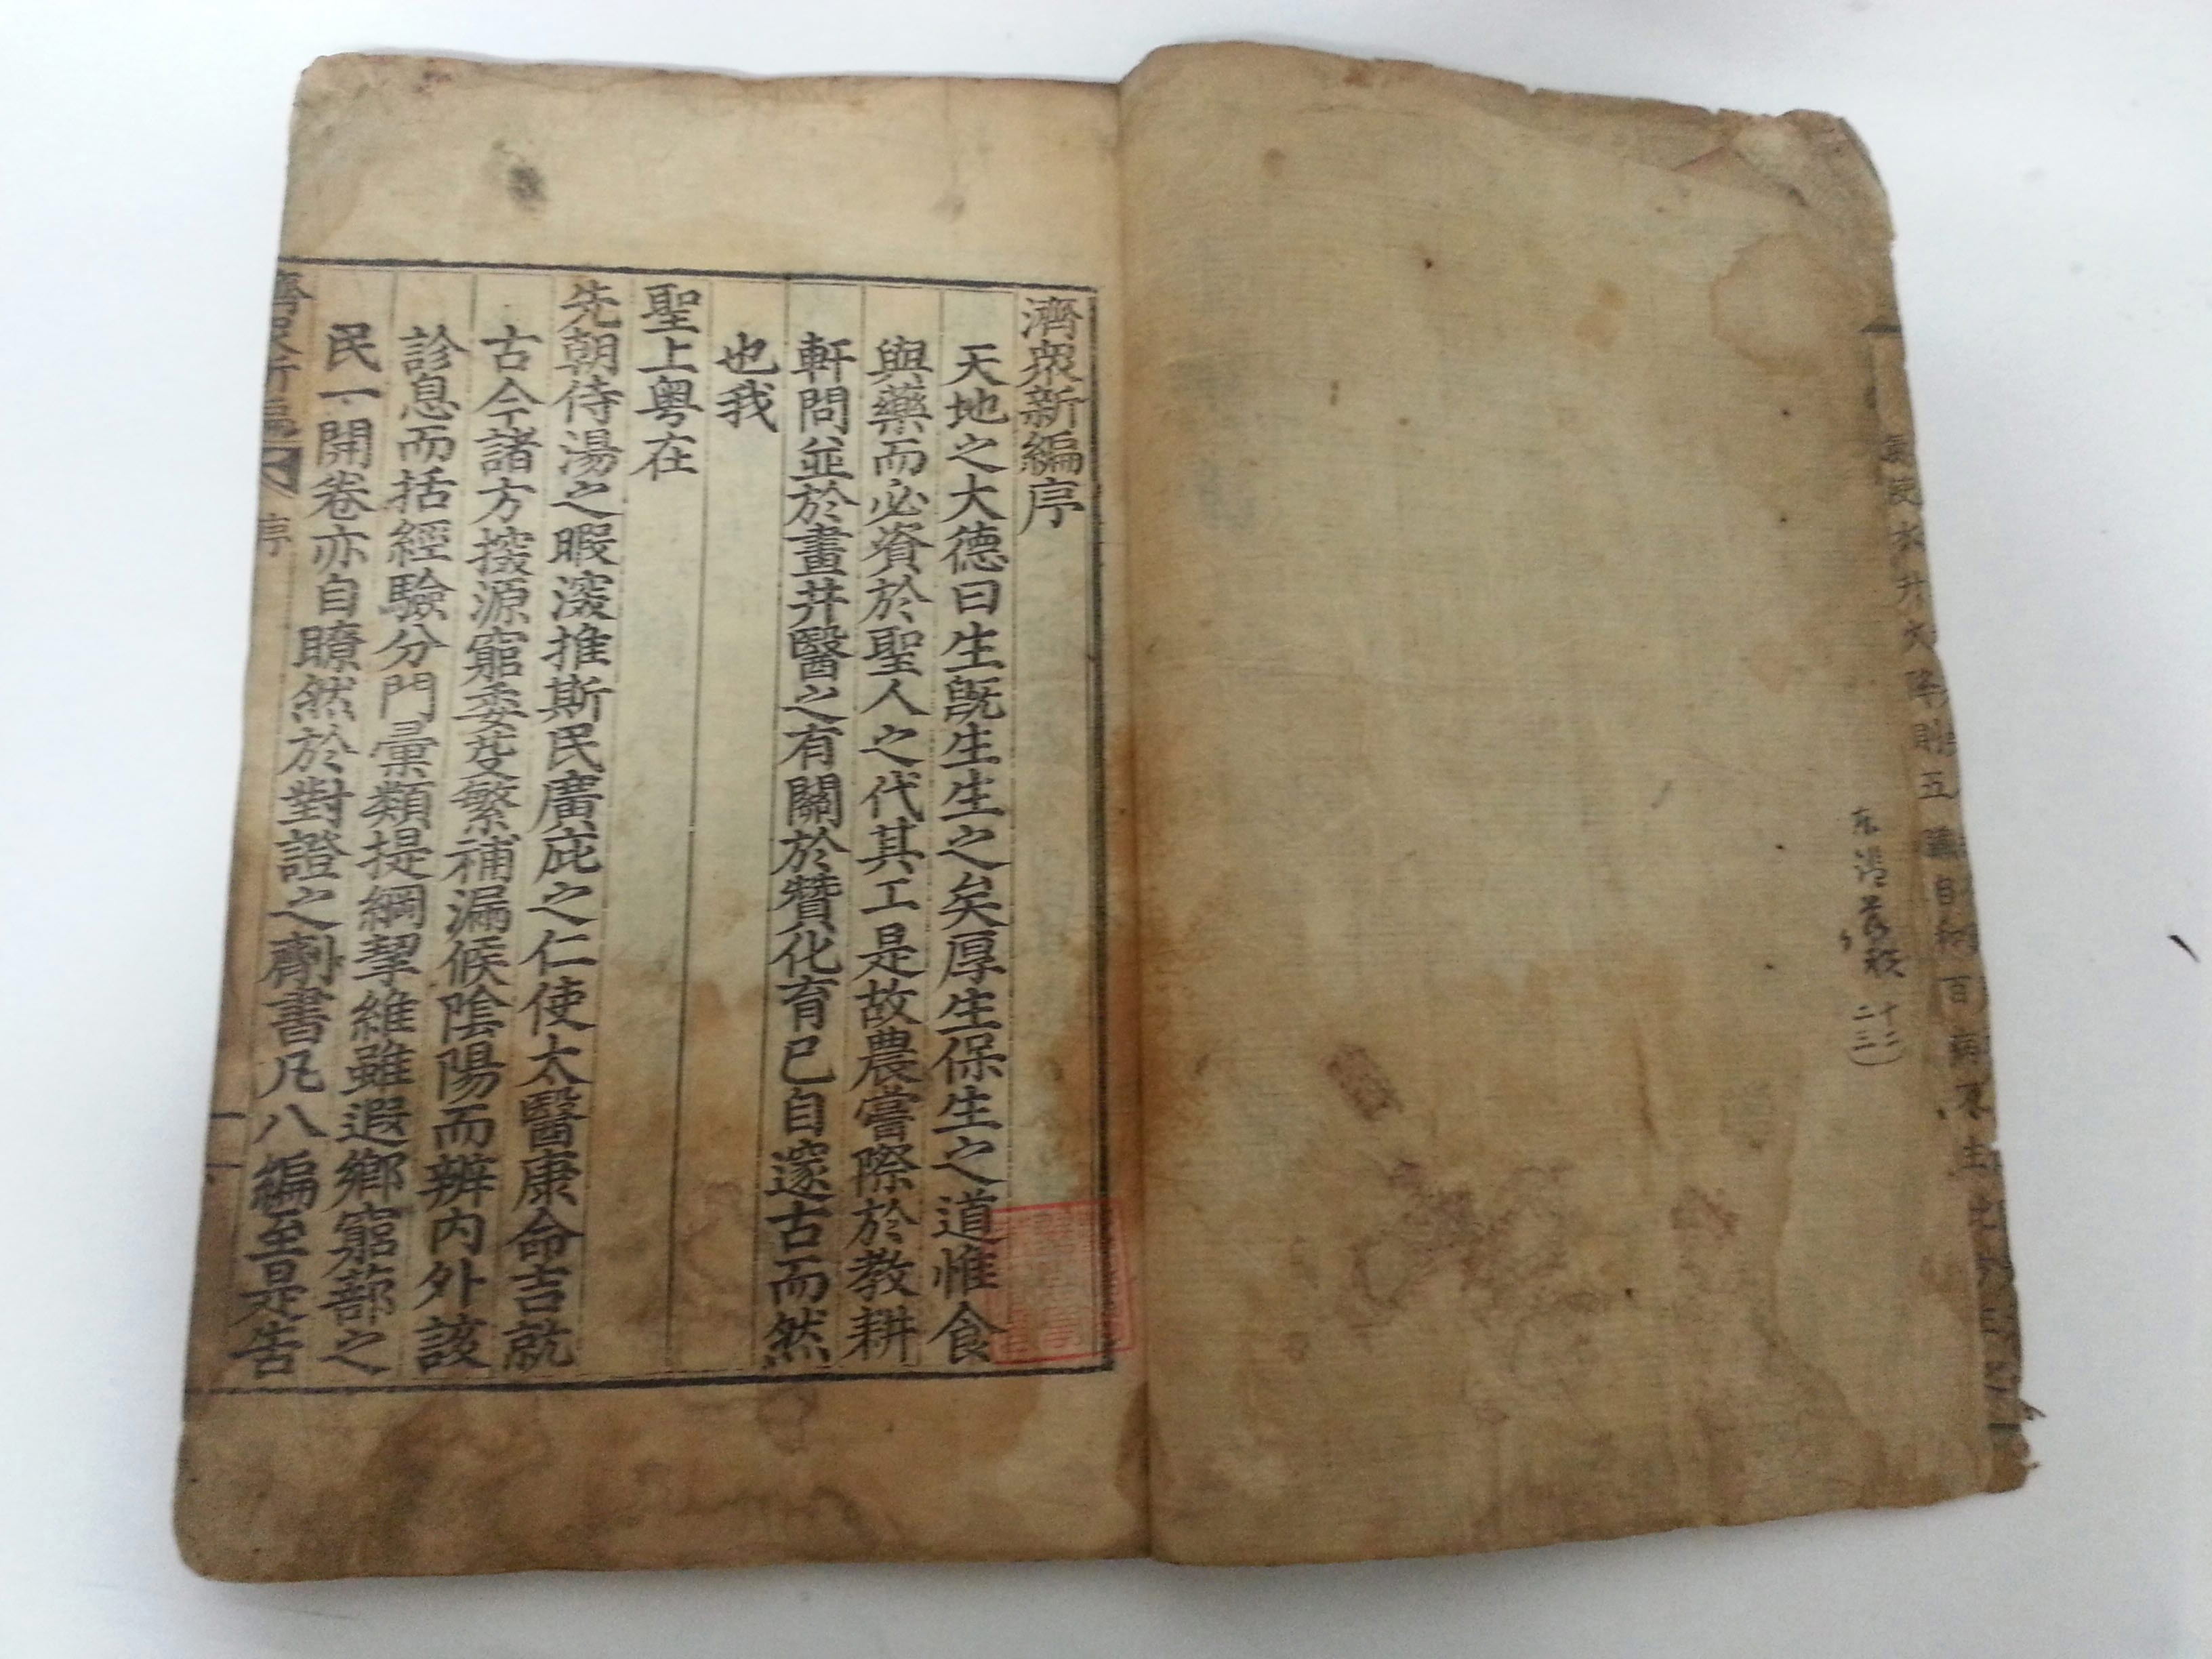 濟衆新編序
天地之大德曰生旣生生之矣厚生保生之道惟食
與藥而必資於聖人之代其工是故農嘗際於敎耕
軒問並於畫井醫之有關於贊化育已自邃古而然
也我
聖上粤在
先朝侍湯之暇深推斯民廣庇之仁使太醫康命吉就
古今諸方探源窮委芟繁補漏候陰陽而辨內外該
診息而括經驗分門彙類提綱挈維雖遐鄉窮蔀之
民一開卷亦自瞭然於對證之劑書凡八編至是告
濟衆新編 序